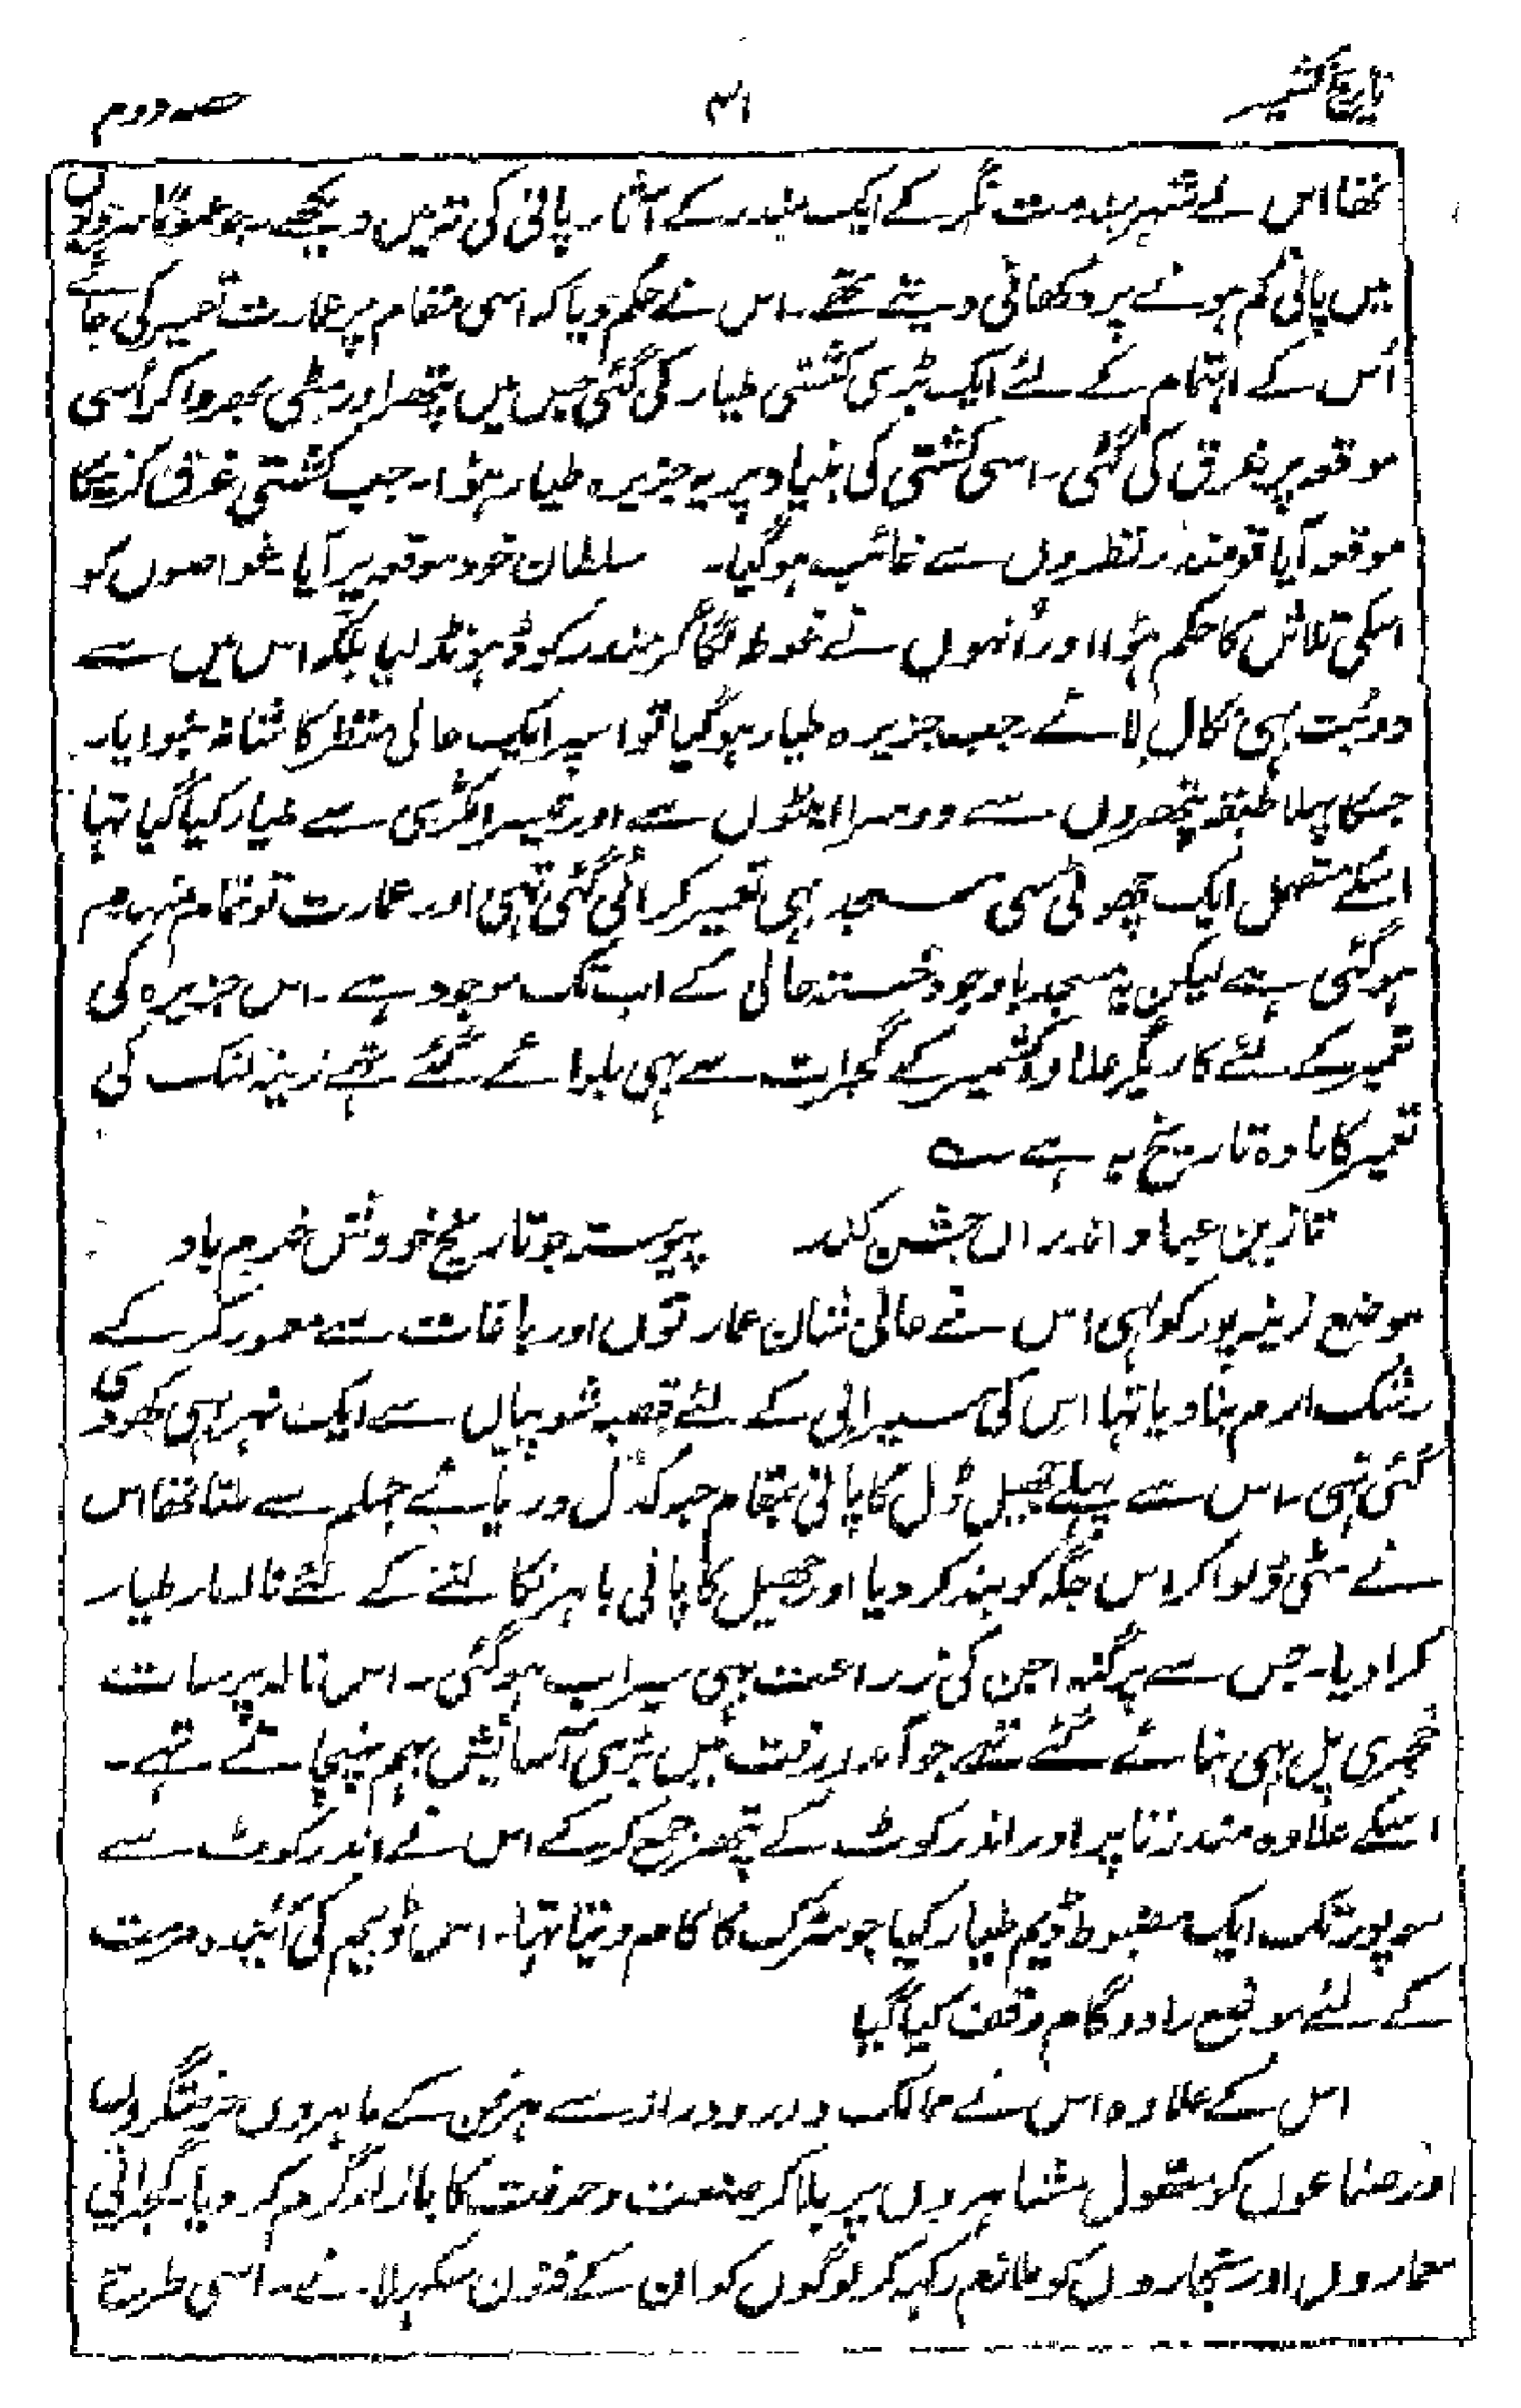 تاریخ کشمیر ۴۱ حصہ دوم
تھا اس نے شہر سندمت نگر کے ایک مندر کے آثار پانی کی تہ میں دیکھے۔ جو عموماً سردیوں
میں پانی کم ہونے پر دکھائی دیتے تھے۔ اس نے حکم دیا کہ اسی مقام پر عمارت تعمیر کی جائے
اُس کے اہتمام کے لئے ایک بڑی کشتی طیار کی گئی جس میں پتھر اور مٹی بھروا کر اُسی
موقعہ پر غرق کی گئی۔ اسی کشتی کی بنیاد پر یہ جزیرہ طیار ہوا۔ جب کشتی غرق کرنیکا
موقعہ آیا تو مندر نظروں سے غائب ہوگیا۔ سلطان خود موقعہ پر آیا غواصوں کو
اسکی تلاش کا حکم ہوا اور اُنہوں نے غوطہ لگا کر مندر کو ڈہونڈ لیا بلکہ اس میں سے
دو بُت بہی نکال لائے۔ جب جزیرہ طیار ہوگیا تو اسپر ایک عالی منظر کاشانہ بنوایا۔
جسکا پہلا طبقہ پتھروں سے دوسرا اینٹوں سے اور تیسرا لکڑی سے طیار کیا گیا تہا
اسکے متصل ایک چھوٹی سی مسجد بہی تعمیر کرائی گئی تہی اور عمارت تو تمام منہدم
ہوگئی ہے لیکن یہ مسجد باوجود خستہ حالی کے اب تک موجود ہے۔ اس جزیرہ کی
تعمیر کے لئے کاریگر علاوہ کشمیر کے گجرات سے بہی بلوائے گئے تہے زینہ لنک کی
تعمیر کا مادہ تاریخ یہ ہے ؎
تا زین عباد اندراں جشن کند پیوستہ چو تاریخ خودش خرم باد
موضع زینہ پور کو بہی اس نے عالی شان عمارتوں اور باغات سے معمور کرکے
رشک ارم بنا دیا تہا اس کی سیرابی کے لئے قصبہ شوپیاں سے ایک نہر بہی کھودی
گئی تہی۔ اس سے پہلے جھیل ڈل کا پانی بمقام حبہ کدل دریائے جہلم سے ملتا تھا اس
نے مٹی ڈلوا کر اس جگہ کو بند کر دیا اور جھیل کا پانی باہر نکالنے کے لئے نالہ مار طیار
کرا دیا۔ جس سے پرگنہ اچن کی زراعت بہی سیراب ہوگئی۔ اس نالہ پر سات
حجری پل بہی بنائے گئے تھے جو آمد و رفت میں بڑی آسائیش بہم پہنچاتے تہے۔
اسکے علاوہ مندر زنا پر اور اندرکوٹ کے پتھر جمع کرکے اس نے اندرکوٹ سے
سوپور تک ایک مضبوط ڈیم طیار کیا جو سڑک کا کام دیتا تہا۔ اس ڈیم کی آئیندہ مرمت
کے لئے موضع رادوگام وقف کیا گیا
اس کے علاوہ اس نے ممالک دور و دراز سے ہر فن کے ماہروں حرفتگروں
اور صناعوں کو معقول مشاہروں پر بلا کر صنعت و حرفت کا بازار گرم کر دیا۔ گجراتی
معماروں اور نجاروں کو ملازم رکہہ کر لوگوں کو ان کے فنون سکہلائے۔ اسی طرح